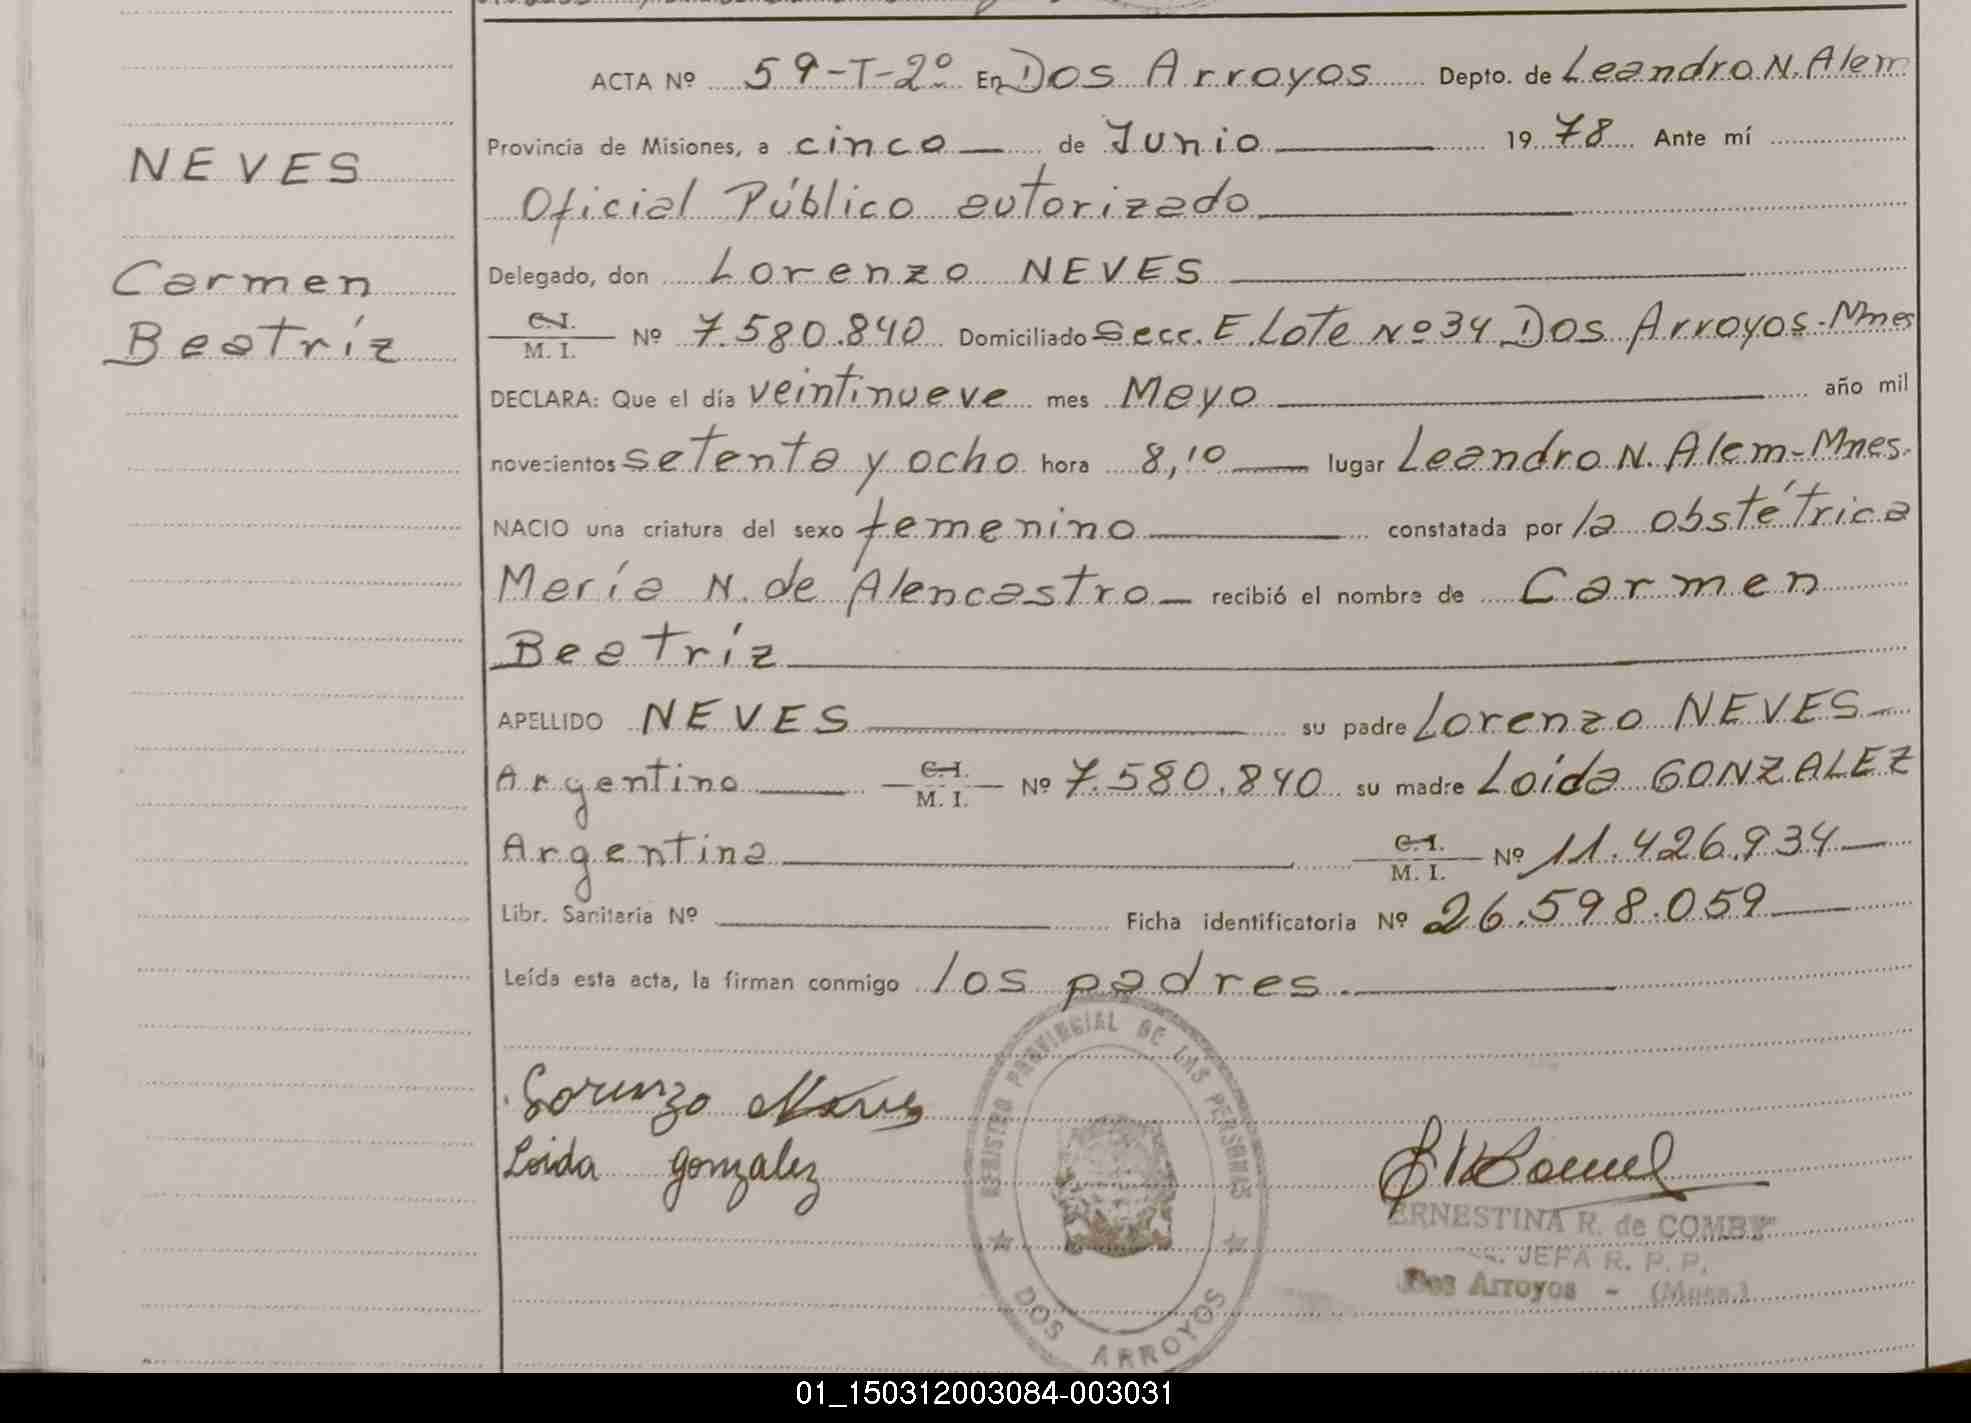 NEVES
Carmen
Beatríz
ACTA Nº 59-T-2º En Dos Arroyos Depto. de Leandro N. Alem
Provincia de Misiones, a cinco de Junio 1978 Ante mí
Oficial Público autorizado
Delegado, don Lorenzo NEVES
C.I.
M. I. Nº 7.580.840 Domiciliado Secc. E. Lote Nº 34 Dos Arroyos-Mnes
DECLARA: Que el día veintinueve mes Mayo año mil
novecientos setenta y ocho hora 8,10 lugar Leandro N. Alem-Mnes.
NACIO una criatura del sexo femenino constatada por la obstétrica
María N. de Alencastro recibió el nombre de Carmen
Beatríz
APELLIDO NEVES su padre Lorenzo NEVES
Argentino C.I. M. I. Nº 7.580.840 su madre Loida GONZALEZ
Argentina C.I. M. I. Nº 11.426.934
Libr. Sanitaria Nº Ficha identificatoria Nº 26.598.059
Leída esta acta, la firman conmigo los padres.
REGISTRO PROVINCIAL DE LAS PERSONAS
DOS ARROYOS
Lorenzo Neves
Loida gonzalez
ERNESTINA R. de COMBY
JEFA R. P. P.
Dos Arroyos - (Mnes.)
01_150312003084-003031